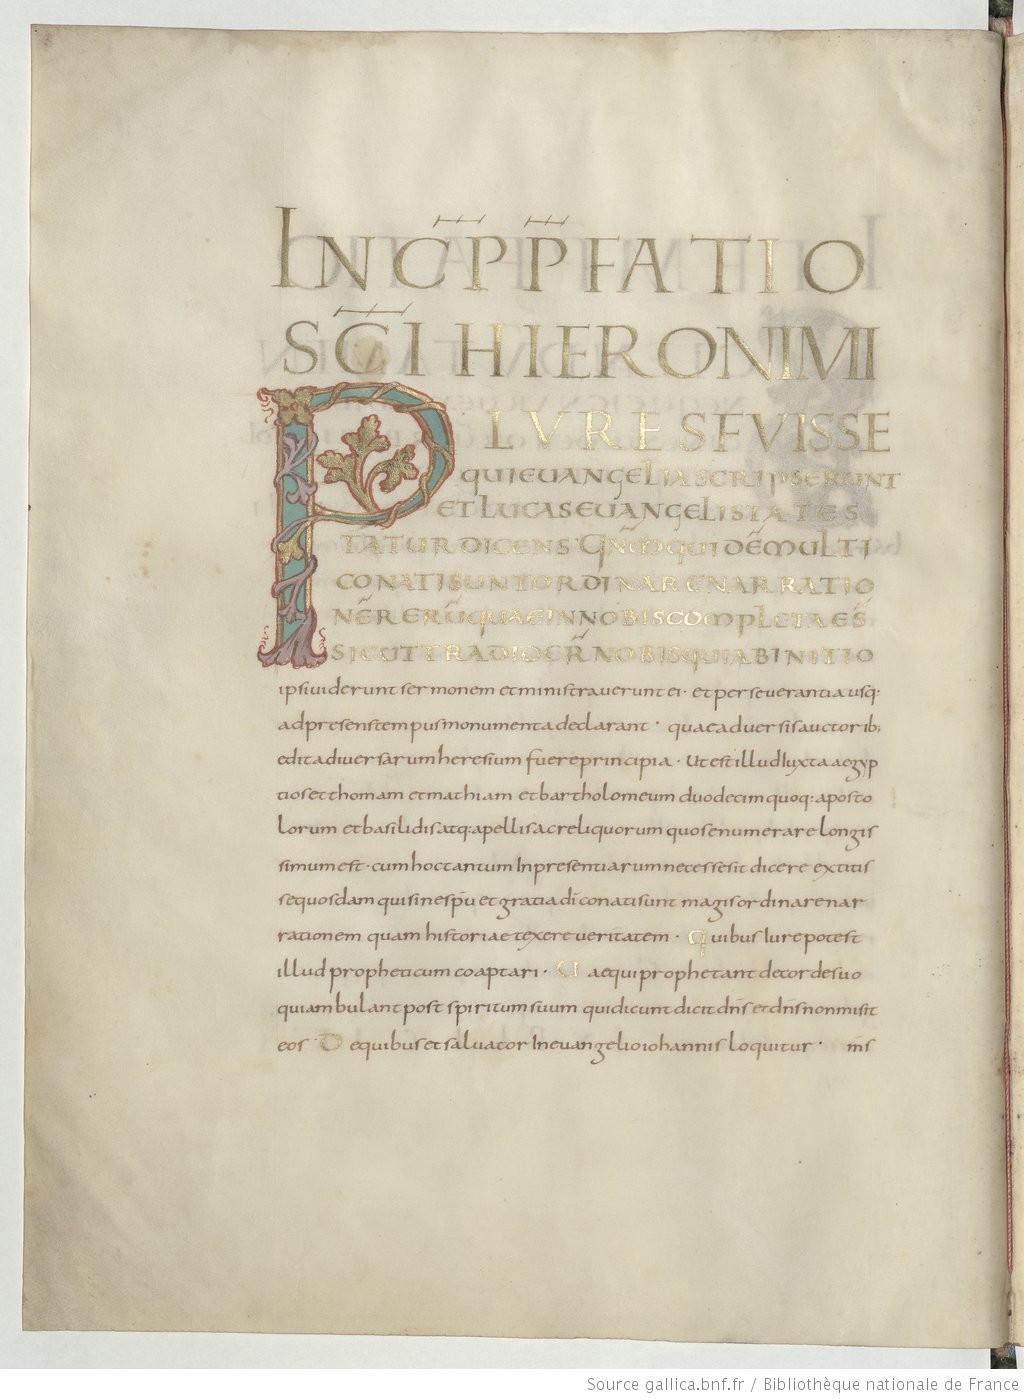 INCP̄ P̄FATIO
SC̄I HIERONIMI
PLURES FUISSE
QUI EUANGELIA SCRIPSERUNT
ET LUCAS EUANGELISTA TES
TATUR DICENS QM̄ QUIDĒ MULTI
CONATI SUNT ORDINARE NARRATIO
NĒ RERŪ QUAE IN NOBIS COMPLETAE S̄
SICUT TRADIDER̄ NOBIS QUI AB INITIO
ipsi uiderunt sermonem et ministrauerunt ei· et perseuerantia usq:
ad presens tempus monumenta declarant · quae a diuersis auctorib;
edita diuersarum heresium fuere principia · Ut est illud Iuxta aegyp
tios et thomam et mathiam et bartholomeum duodecim quoq: aposto
lorum et basilidis atq: apellis ac reliquorum quos enumerare longis
simum est · cum hoc tantum In presentiarum necesse sit dicere extitis
se quosdam qui sine sp̄u et gratia dī conati sunt magis ordinare nar
rationem quam historiae texere ueritatem · Quibus Iure potest
illud propheticum coaptari · Uae qui prophetant de corde suo
qui ambulant post spiritum suum qui dicunt dicit dn̄s et dn̄s non misit
eos · De quibus et saluator In euangelio iohannis loquitur · m̄s
Source gallica.bnf.fr / Bibliothèque nationale de France